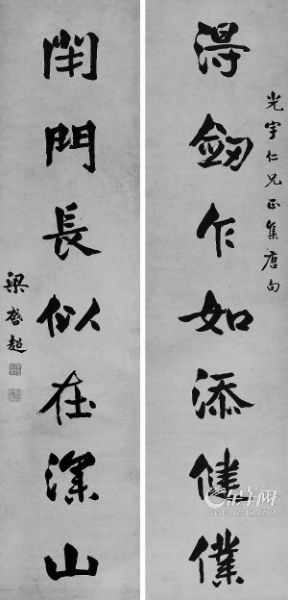 光宇仁兄正集唐句
得劒乍如添健僕
閉門長似在深山
梁啓超